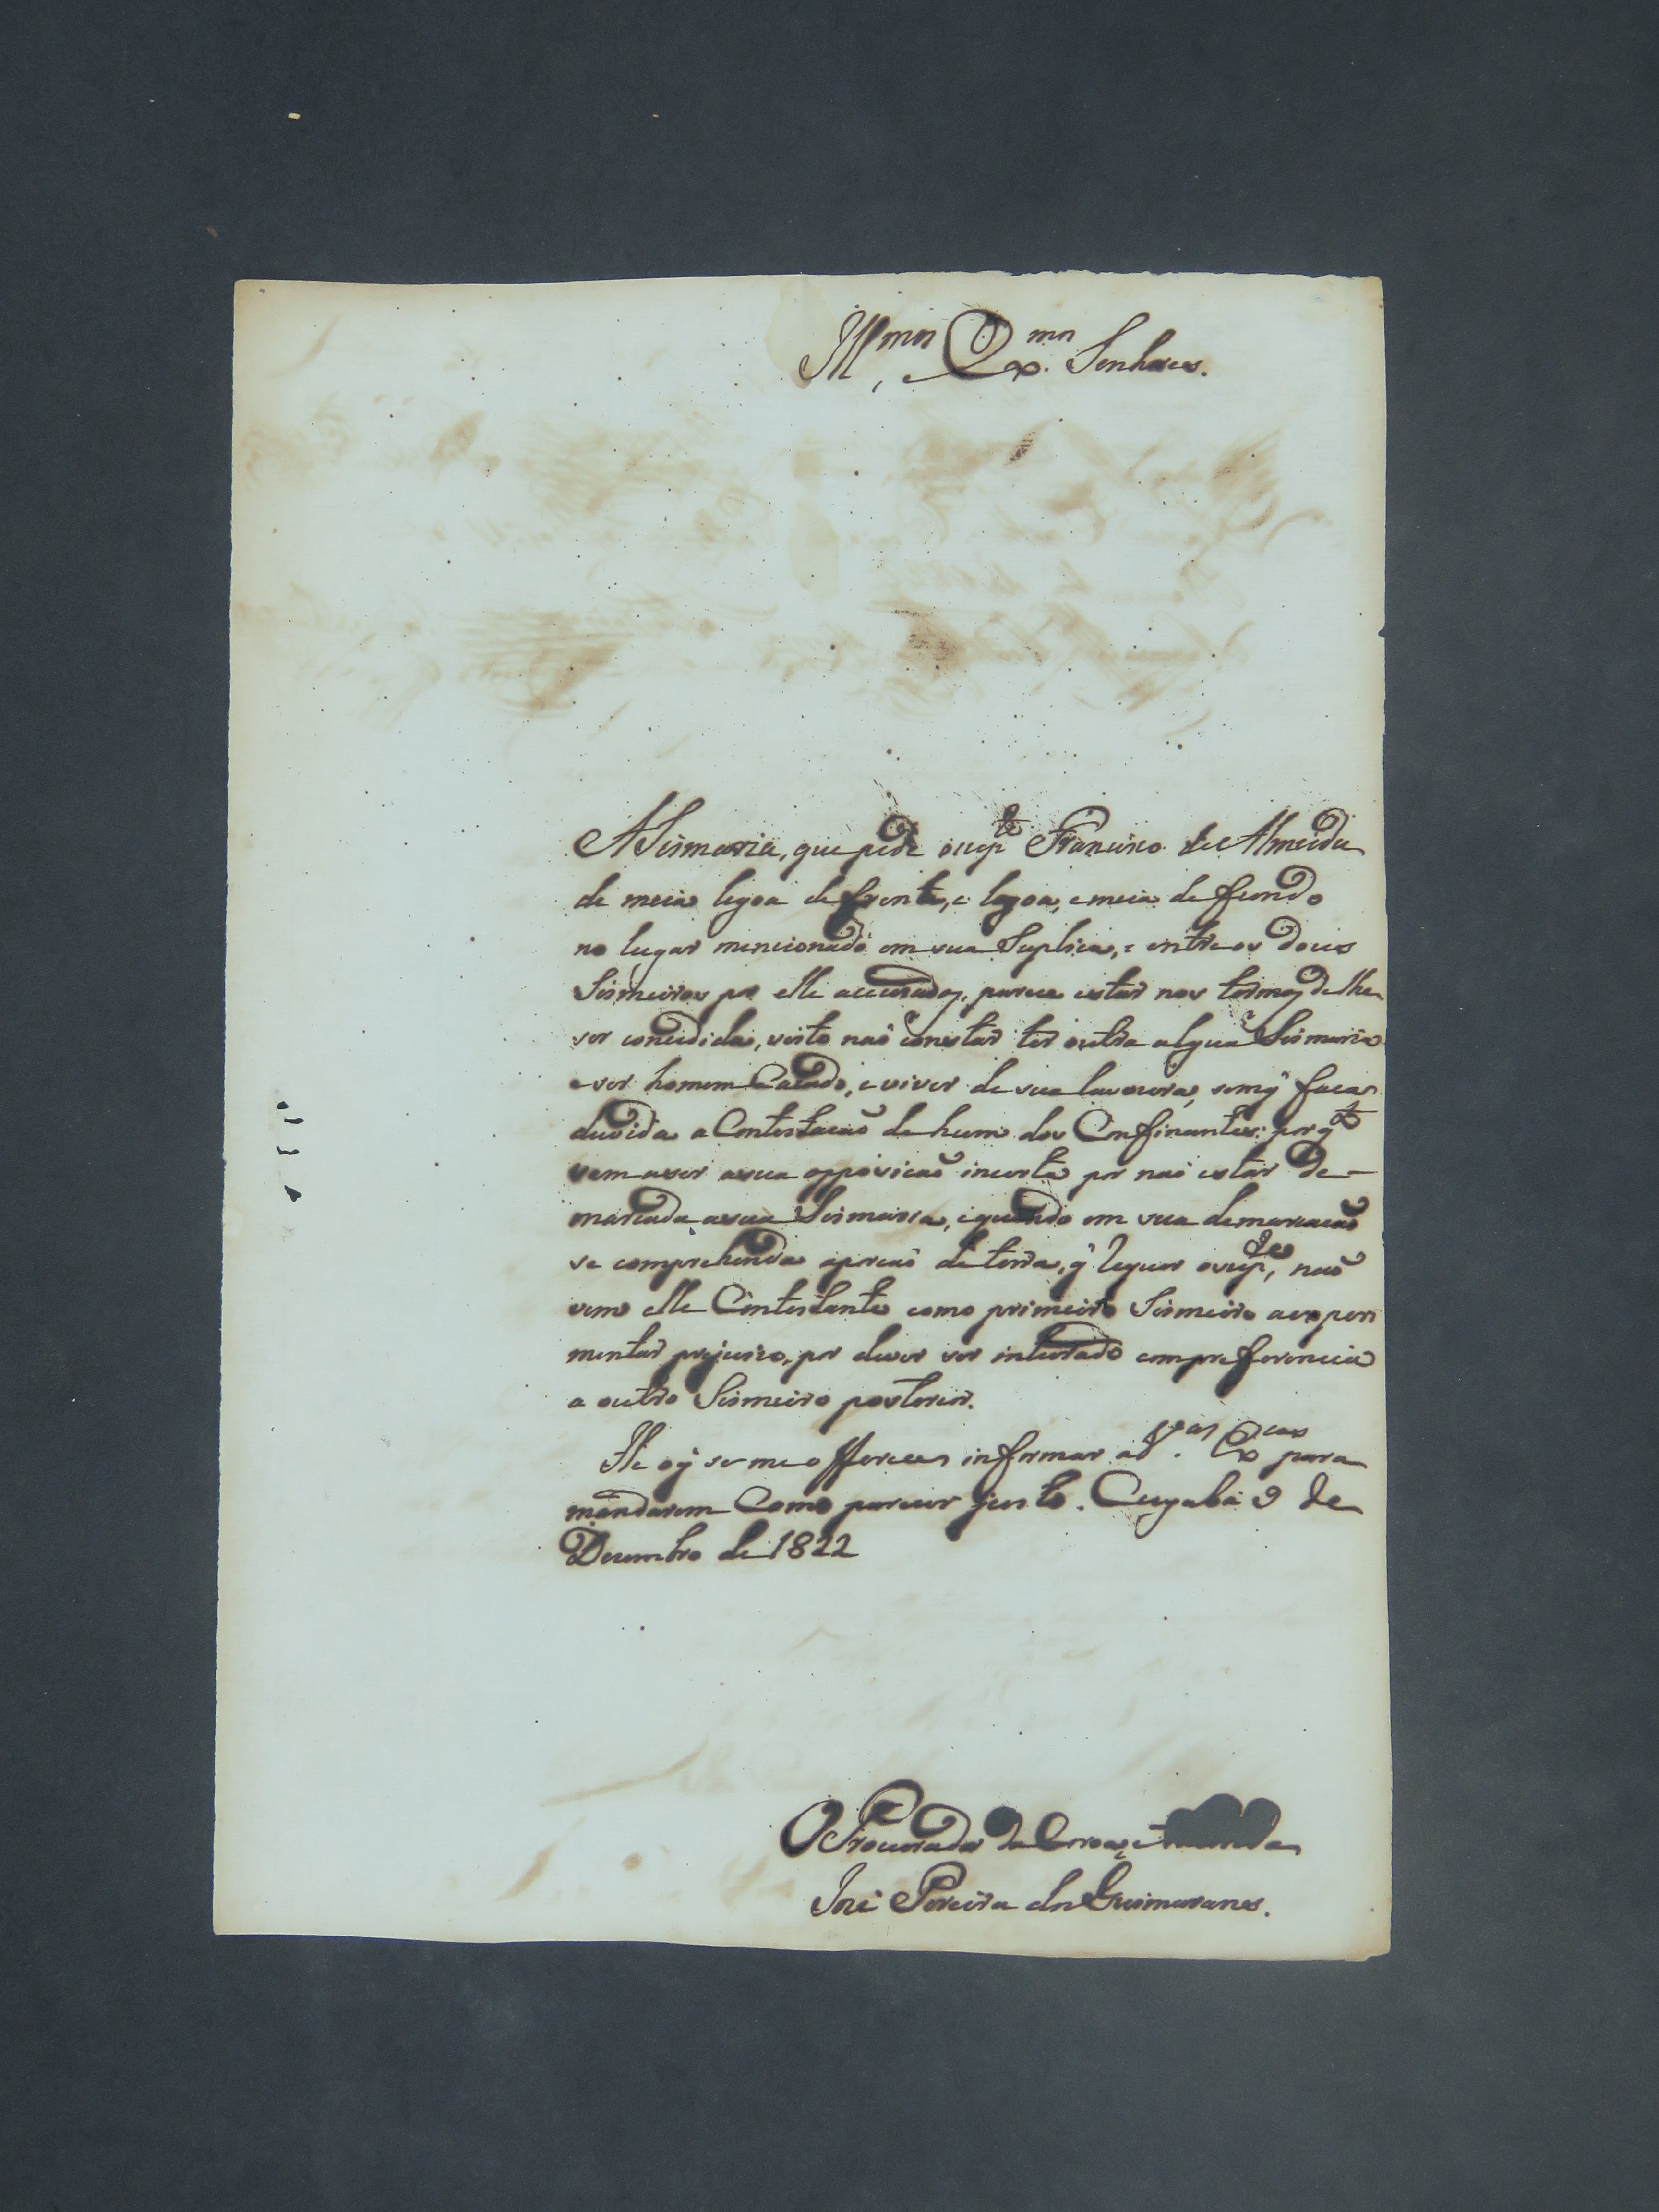 Ill.mos e Ex.mos Senhores.
A Sismaria, que pede o sup.te Francisco de Almeida
de meia legoa de frente, e legoa, e meia de fundo
no lugar mencionado em sua Suplica, e entre os dous
Sismeiros por elle accusados, parece estar nos termos de lhe
ser concedida, visto naõ constar ter outra algũa Sismaria
e ser homem Cazado, e viver de sua lavoura, sem q̃ faça
duvida a Contestacaõ de hum dos Confinantes: por q.to
vem a ser a sua opposicaõ incerta por naõ estar de-
marcada a sua Sismaria, e quando em sua demarcacaõ
se comprehenda a porcaõ de terra, q̃ requer o sup.te, naõ
vem elle Contestante como primeiro Sismeiro a experi
mentar prejuizo, por dever ser inteirado com preferencia
a outro Sismeiro posterior.
He o q̃ se me offerece informar a V.as Ex.cas para
mandarem Como parecer justo. Cuyabá 9 de
Dezembro de 1822
O Procurador da Coroa, e
José Pereira dos Guimaraens.